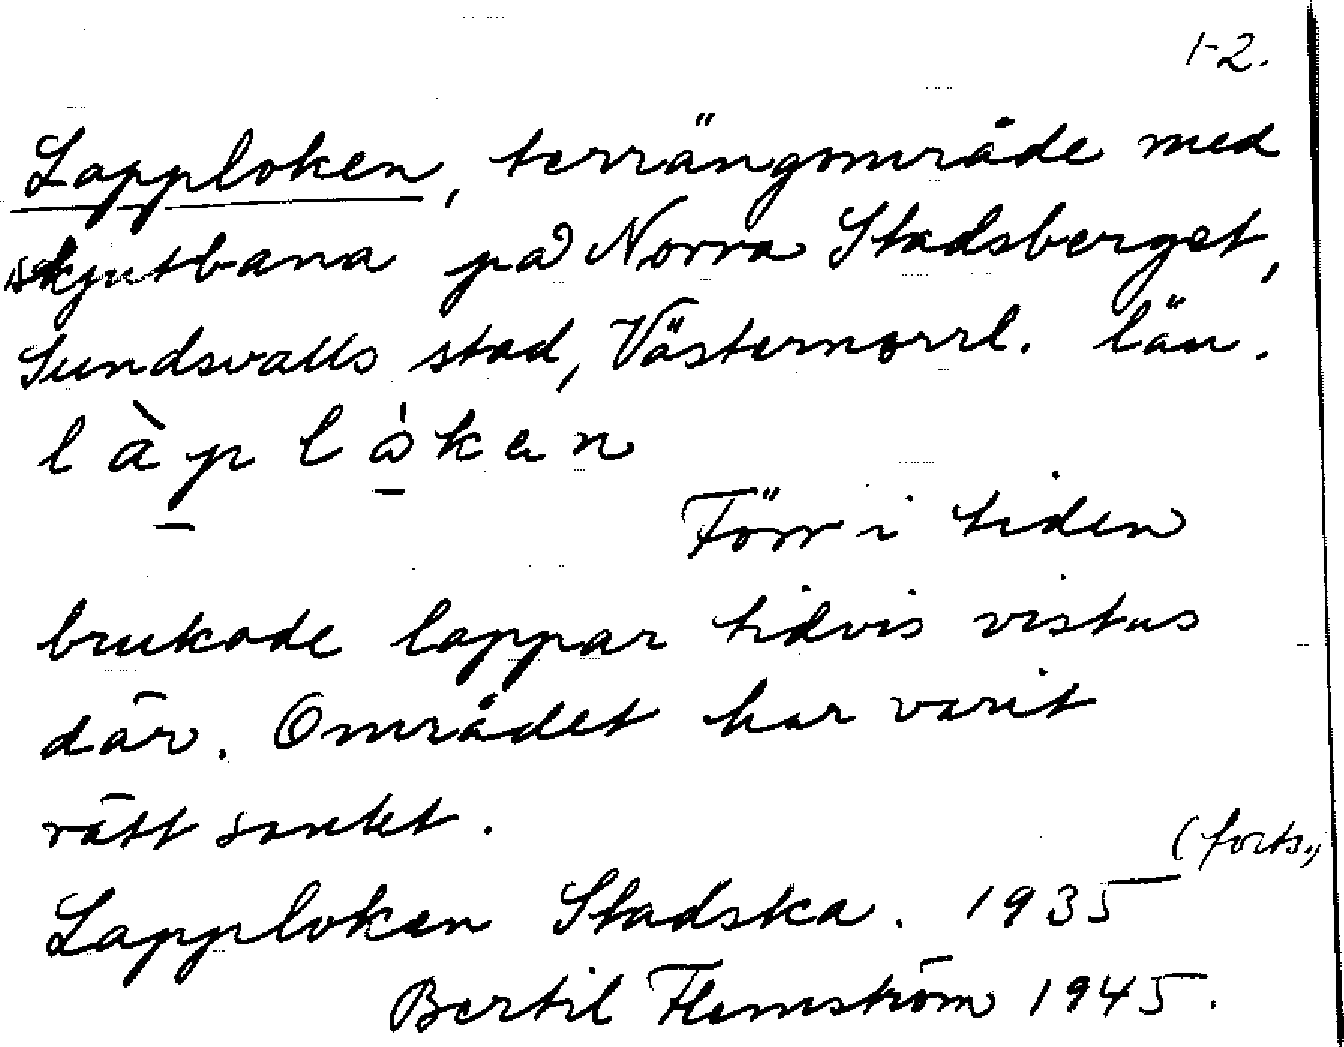 1-2.
Lapploken, terrängområde med
skjutbana på Norra Stadsberget,
Sundsvalls stad, Västernorrl. län.
l à p l ó k e n
Förr i tiden
brukade lappar tidvis vistas
där. Området har varit
rätt sankt.
(forts.,
Lapploken Stadska. 1935
Bertil Flemström 1945.